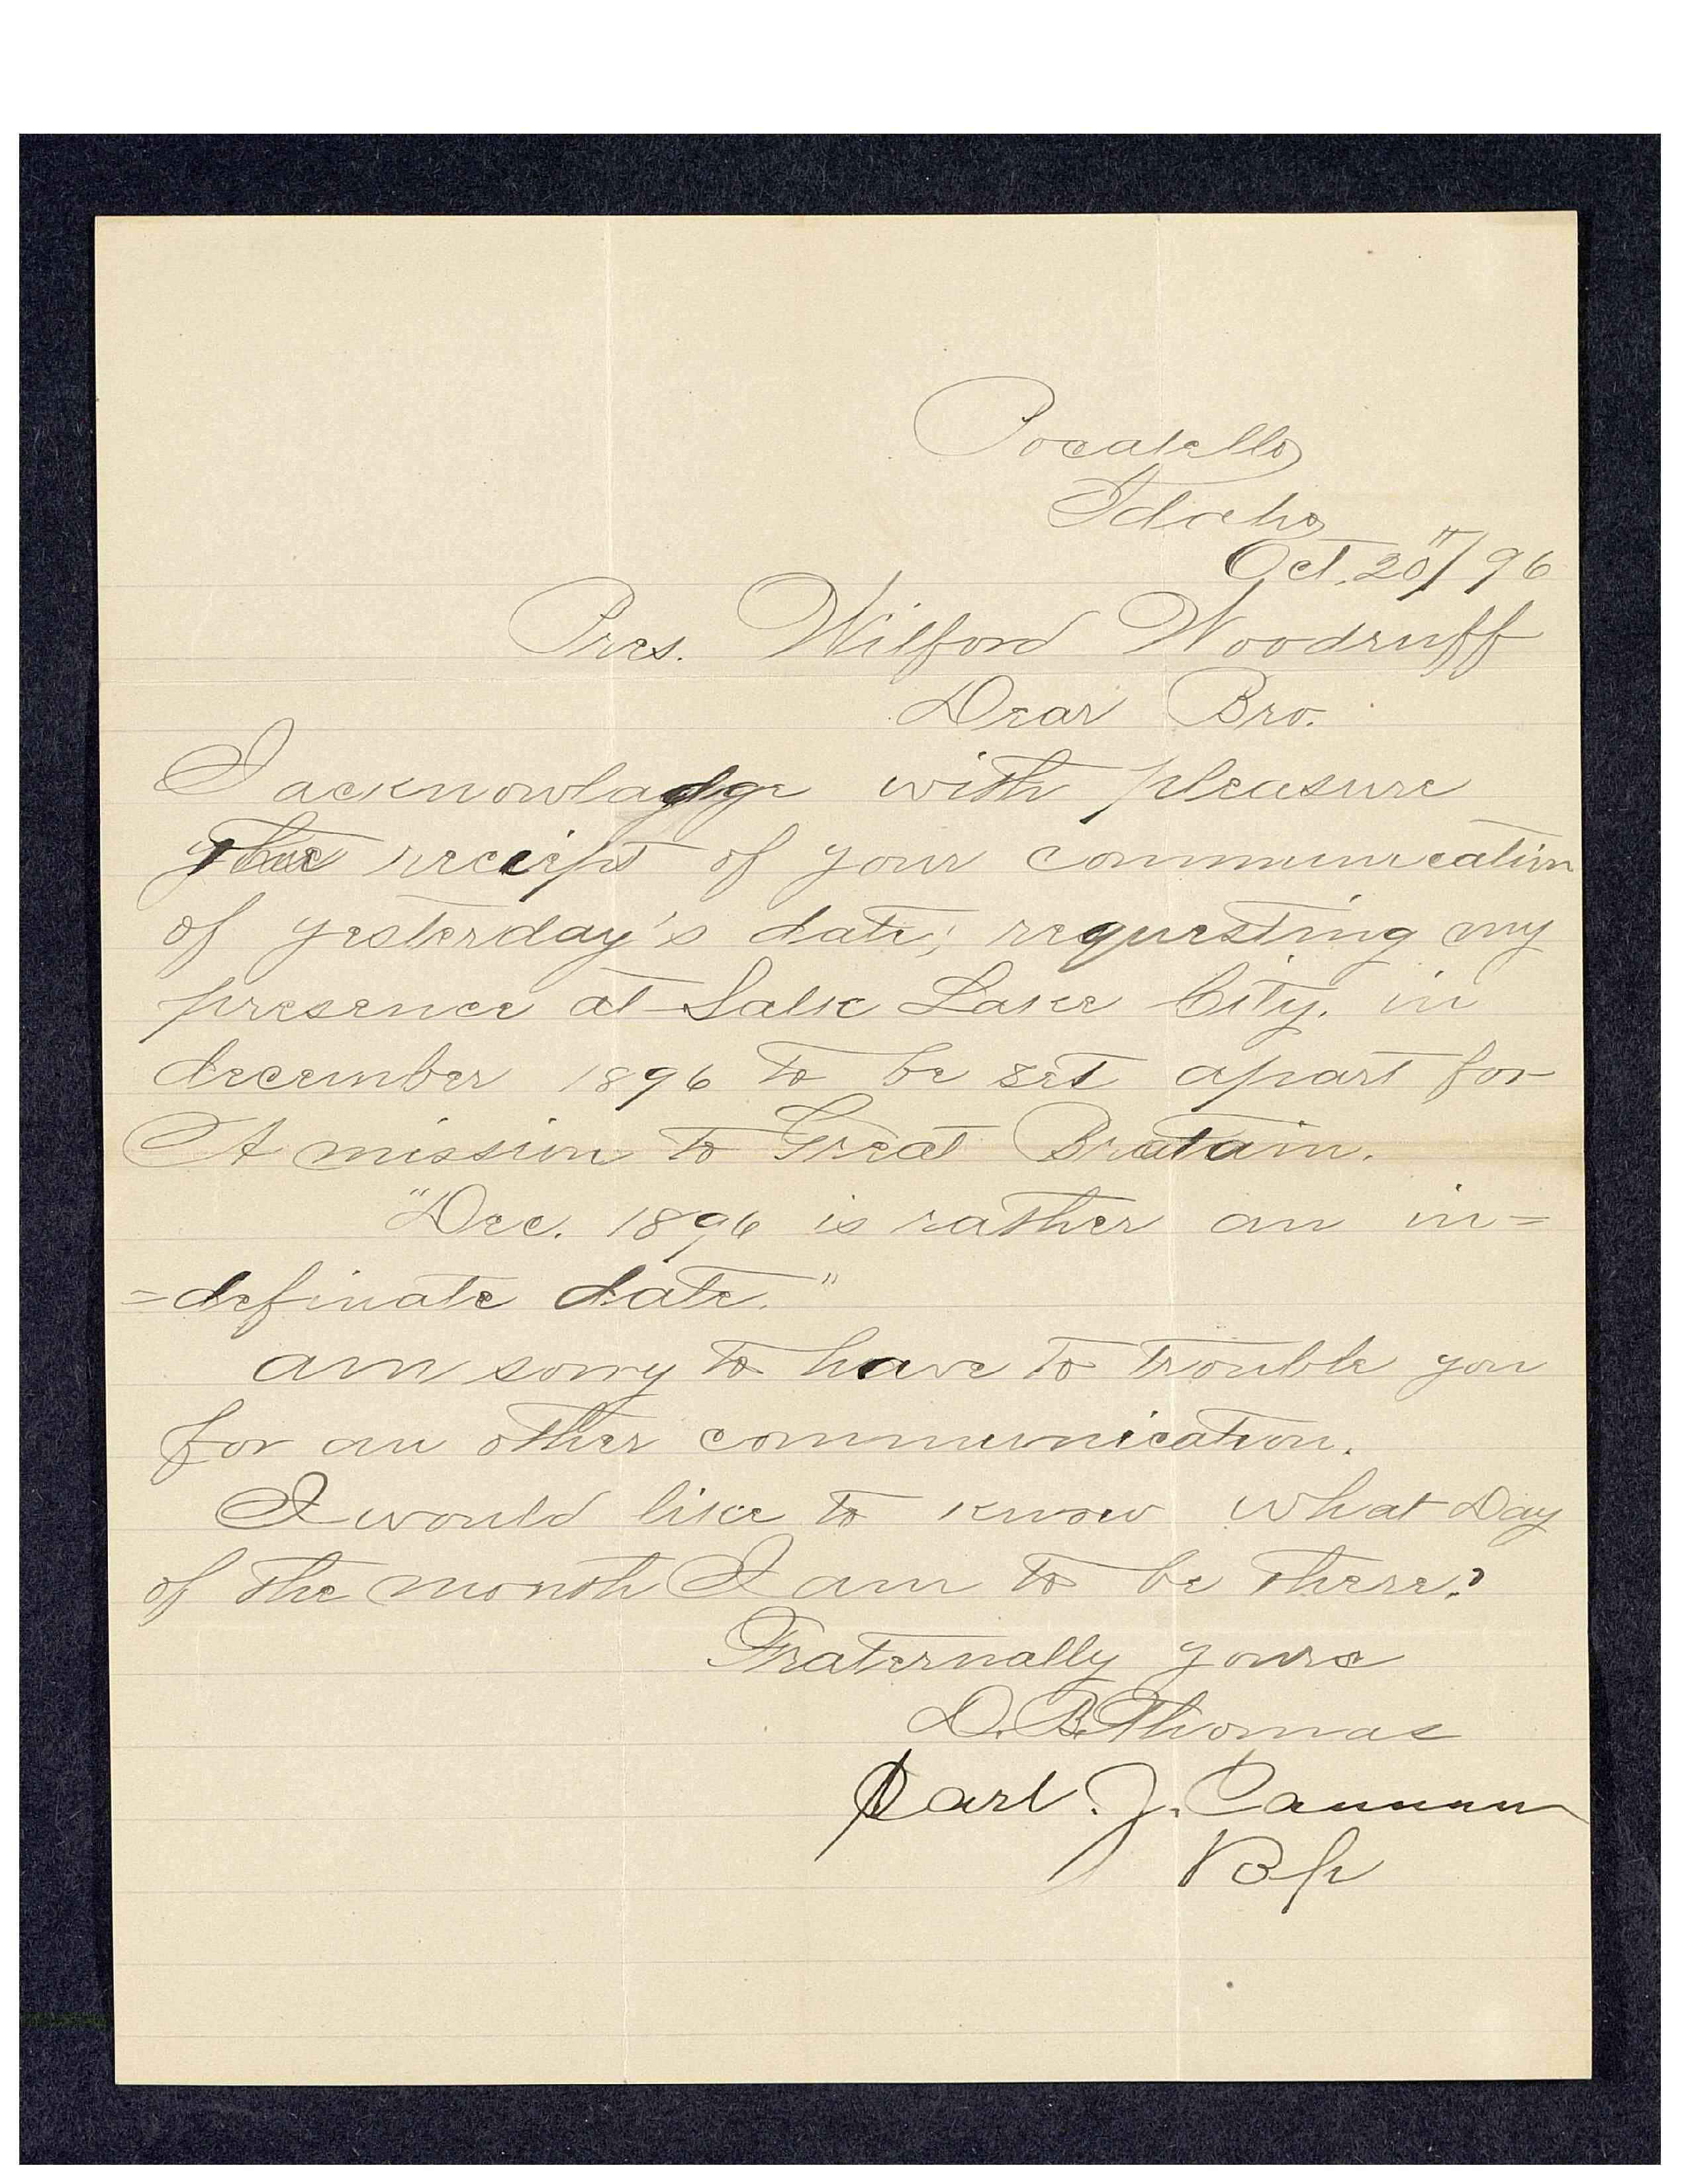 Pocatello
Idaho
Oct. 20"/96
Pres. Wilford Woodruff
Dear Bro.
I acknowladge with pleasure
the reciept of your communication
of yesterday's date; requesting my
presence at Salt Lake City, in
december 1896 to be set apart for
A mission to Great Bratain.
"Dec. 1896 is rather an in=
=definate date."
am sorry to have to trouble you
for an other communication.
I would like to know what Day
of the month I am to be there?
Fraternally yours
D. B. Thomas
Carl. J. Cannon
Bp